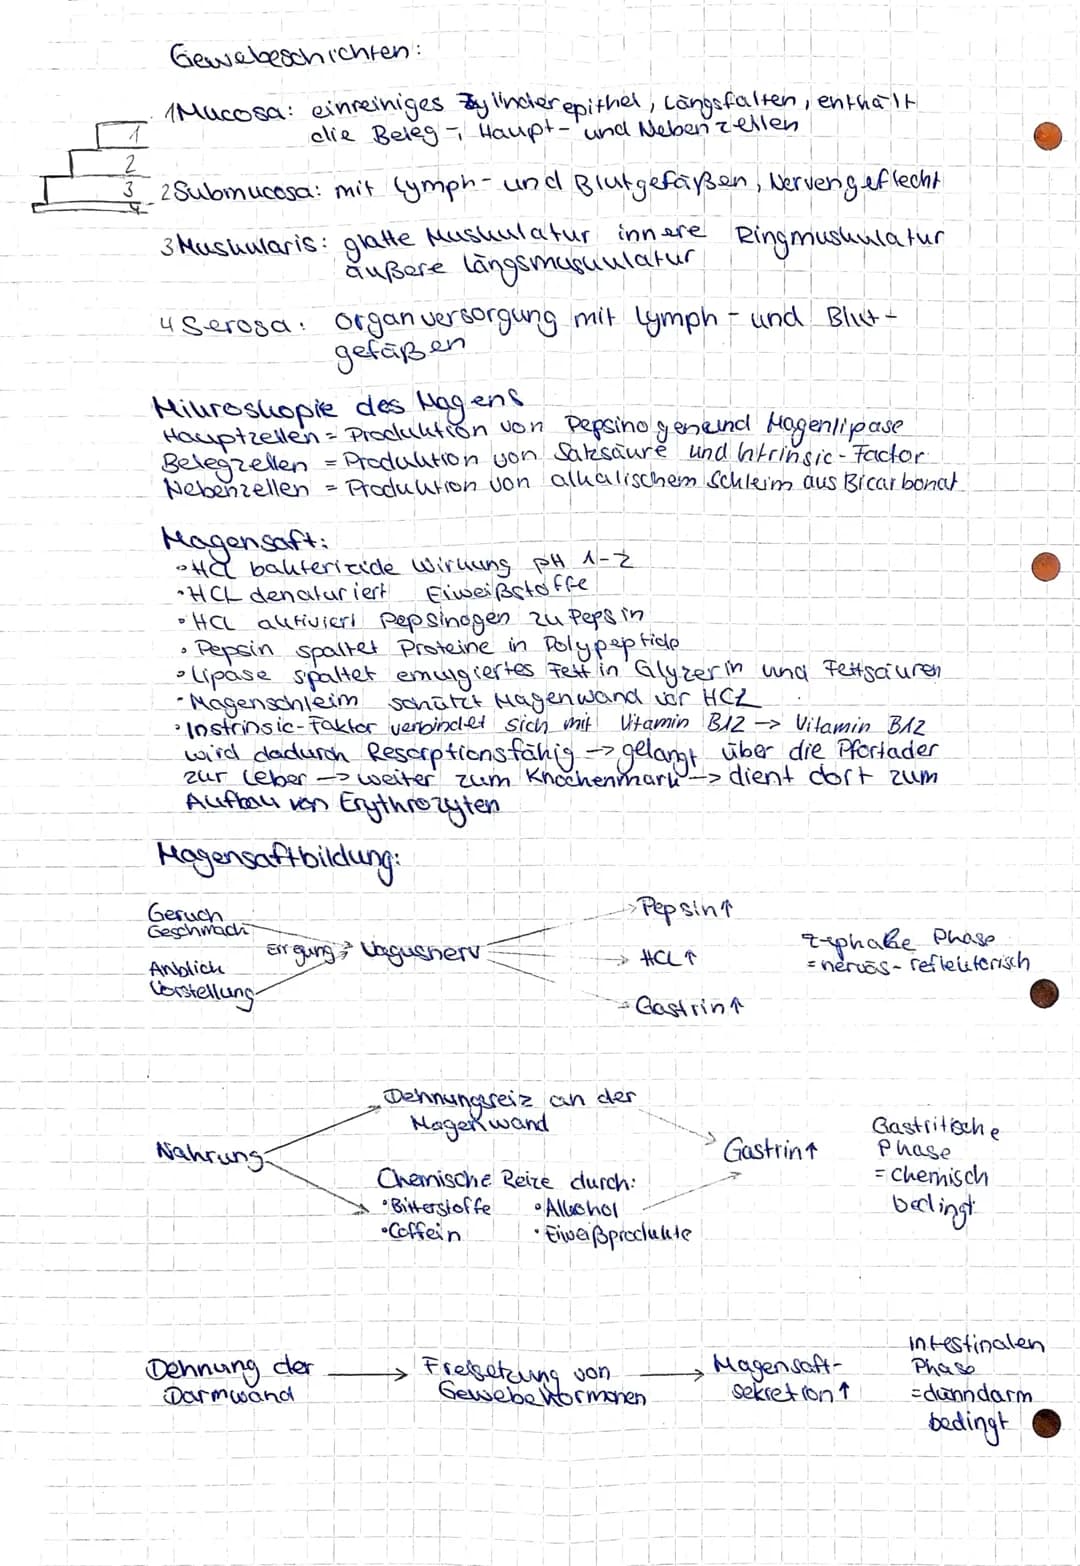 Gewebeschichten:
1 Mucosa: einreiniges Zylinderepithel, Längsfalten, enthält
die Beleg-, Haupt- und Nebenzellen
1
2
3
4
2 Submucosa: mit Lymph- und Blutgefäßen, Nervengeflecht
3 Muskularis: glatte Muskulatur innere Ringmuskulatur
äußere Längsmuskulatur
4 Serosa: Organversorgung mit Lymph- und Blut-
gefäßen
Mikroskopie des Magens
Hauptzellen = Produktion von Pepsinogen und Magenlipase
Belegzellen = Produktion von Salzsäure und Intrinsic-Factor
Nebenzellen = Produktion von alkalischem Schleim aus Bicarbonat
Magensaft:
• HCL bakterizide Wirkung pH 1-2
• HCL denaturiert Eiweißstoffe
• HCL aktiviert Pepsinogen zu Pepsin
• Pepsin spaltet Proteine in Polypeptide
• Lipase spaltet emulgiertes Fett in Glyzerin und Fettsäuren
• Magenschleim schützt Magenwand vor HCL
• Instrinsic-Faktor verbindet sich mit Vitamin B12 -> Vitamin B12
wird dadurch Resorptionsfähig -> gelangt über die Pfortader
zur Leber -> weiter zum Knochenmark -> dient dort zum
Aufbau von Erythrozyten
Magensaftbildung:
Geruch
Geschmack
Anblick
Vorstellung
Errgung -> Vagusnerv
-> Pepsin↑
-> HCL↑
-> Gastrin↑
Zephale Phase
= nervös-reflektorisch
Nahrung
Dehnungsreiz an der
Magenwand
Chemische Reize durch:
• Bitterstoffe • Alkohol
• Coffein • Eiweißprodukte
Gastrin↑
Gastritische
Phase
= Chemisch
bedingt
Dehnung der
Darmwand
-> Freisetzung von
Gewebehormonen
-> Magensaft-
sekretion↑
Intestinalen
Phase
= dünndarm
bedingt